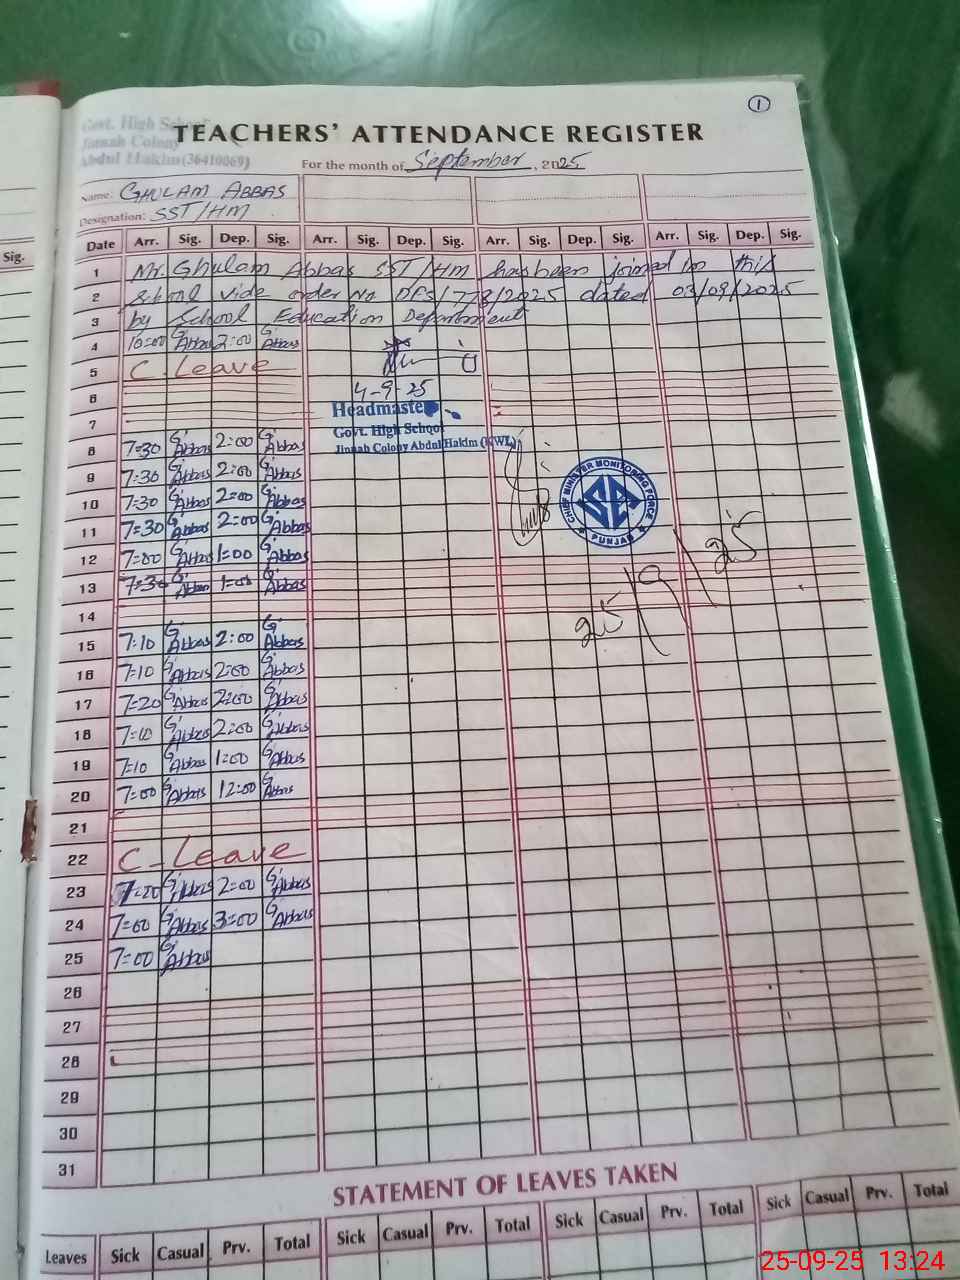 1
Govt. High School
Jinnah Colony
Abdul Hakim (36410069)
TEACHERS' ATTENDANCE REGISTER
For the month of September, 2025
Name: GHULAM ABBAS
Designation: SST/HM
Sig.
Date Arr. Sig. Dep. Sig. Arr. Sig. Dep. Sig. Arr. Sig. Dep. Sig. Arr. Sig. Dep. Sig.
1 Mr. Ghulam Abbas SST/HM has been joined in this
2 School vide order No DFS/778/2025 dated 03/09/2025
3 by School Education Department
4 10=00 G.Abbas 2=00 G.Abbas
5 C. Leave
4-9-25
6
Headmaster
7
Govt. High School
Jinnah Colony Abdul Hakim (KWL)
8 7=30 G.Abbas 2=00 G.Abbas
9 7=30 G.Abbas 2=00 G.Abbas
10 7=30 G.Abbas 2=00 G.Abbas
11 7=30 G.Abbas 2=00 G.Abbas
CHIEF MINISTER MONITORING FORCE
PUNJAB
12 7=00 G.Abbas 1=00 G.Abbas
13 7=30 G.Abbas 1=00 G.Abbas
25/9/25
14
15 7=10 G.Abbas 2=00 G.Abbas
16 7=10 G.Abbas 2=00 G.Abbas
17 7=20 G.Abbas 2=00 G.Abbas
18 7=10 G.Abbas 2=00 G.Abbas
19 7=10 G.Abbas 1=00 G.Abbas
20 7=00 G.Abbas 12=00 G.Abbas
21
22 C-Leave
23 7=00 G.Abbas 2=00 G.Abbas
24 7=00 G.Abbas 3=00 G.Abbas
25 7=00 G.Abbas
26
27
28
29
30
31
STATEMENT OF LEAVES TAKEN
Leaves Sick Casual Prv. Total Sick Casual Prv. Total Sick Casual Prv. Total Sick Casual Prv. Total
25-09-25 13:24